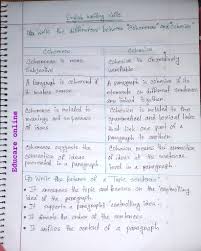 English writing skills
Q1. Write the difference between "Coherence" and "Cohesion"
Coherence
Cohesion
Coherence is more subjective
Cohesion is
A paragraph is coherent if it makes sense
A paragraph is cohesive if its elements or different sentences are linked together.
Coherence is related to meanings and sequences of ideas
Cohesion is related to the grammatical and lexical links that link one part of a paragraph to another.
Coherence suggests the connection of ideas in a paragraph
Cohesion means the connection of ideas at the sentence level in a paragraph.
Q2 Write the of a "Topic sentence".
• It announces the topic and the "controlling idea" of the paragraph
• It supports a paragraph's "controlling idea"
• It the order of the sentences
• It unifies the content of a paragraph
Educare online